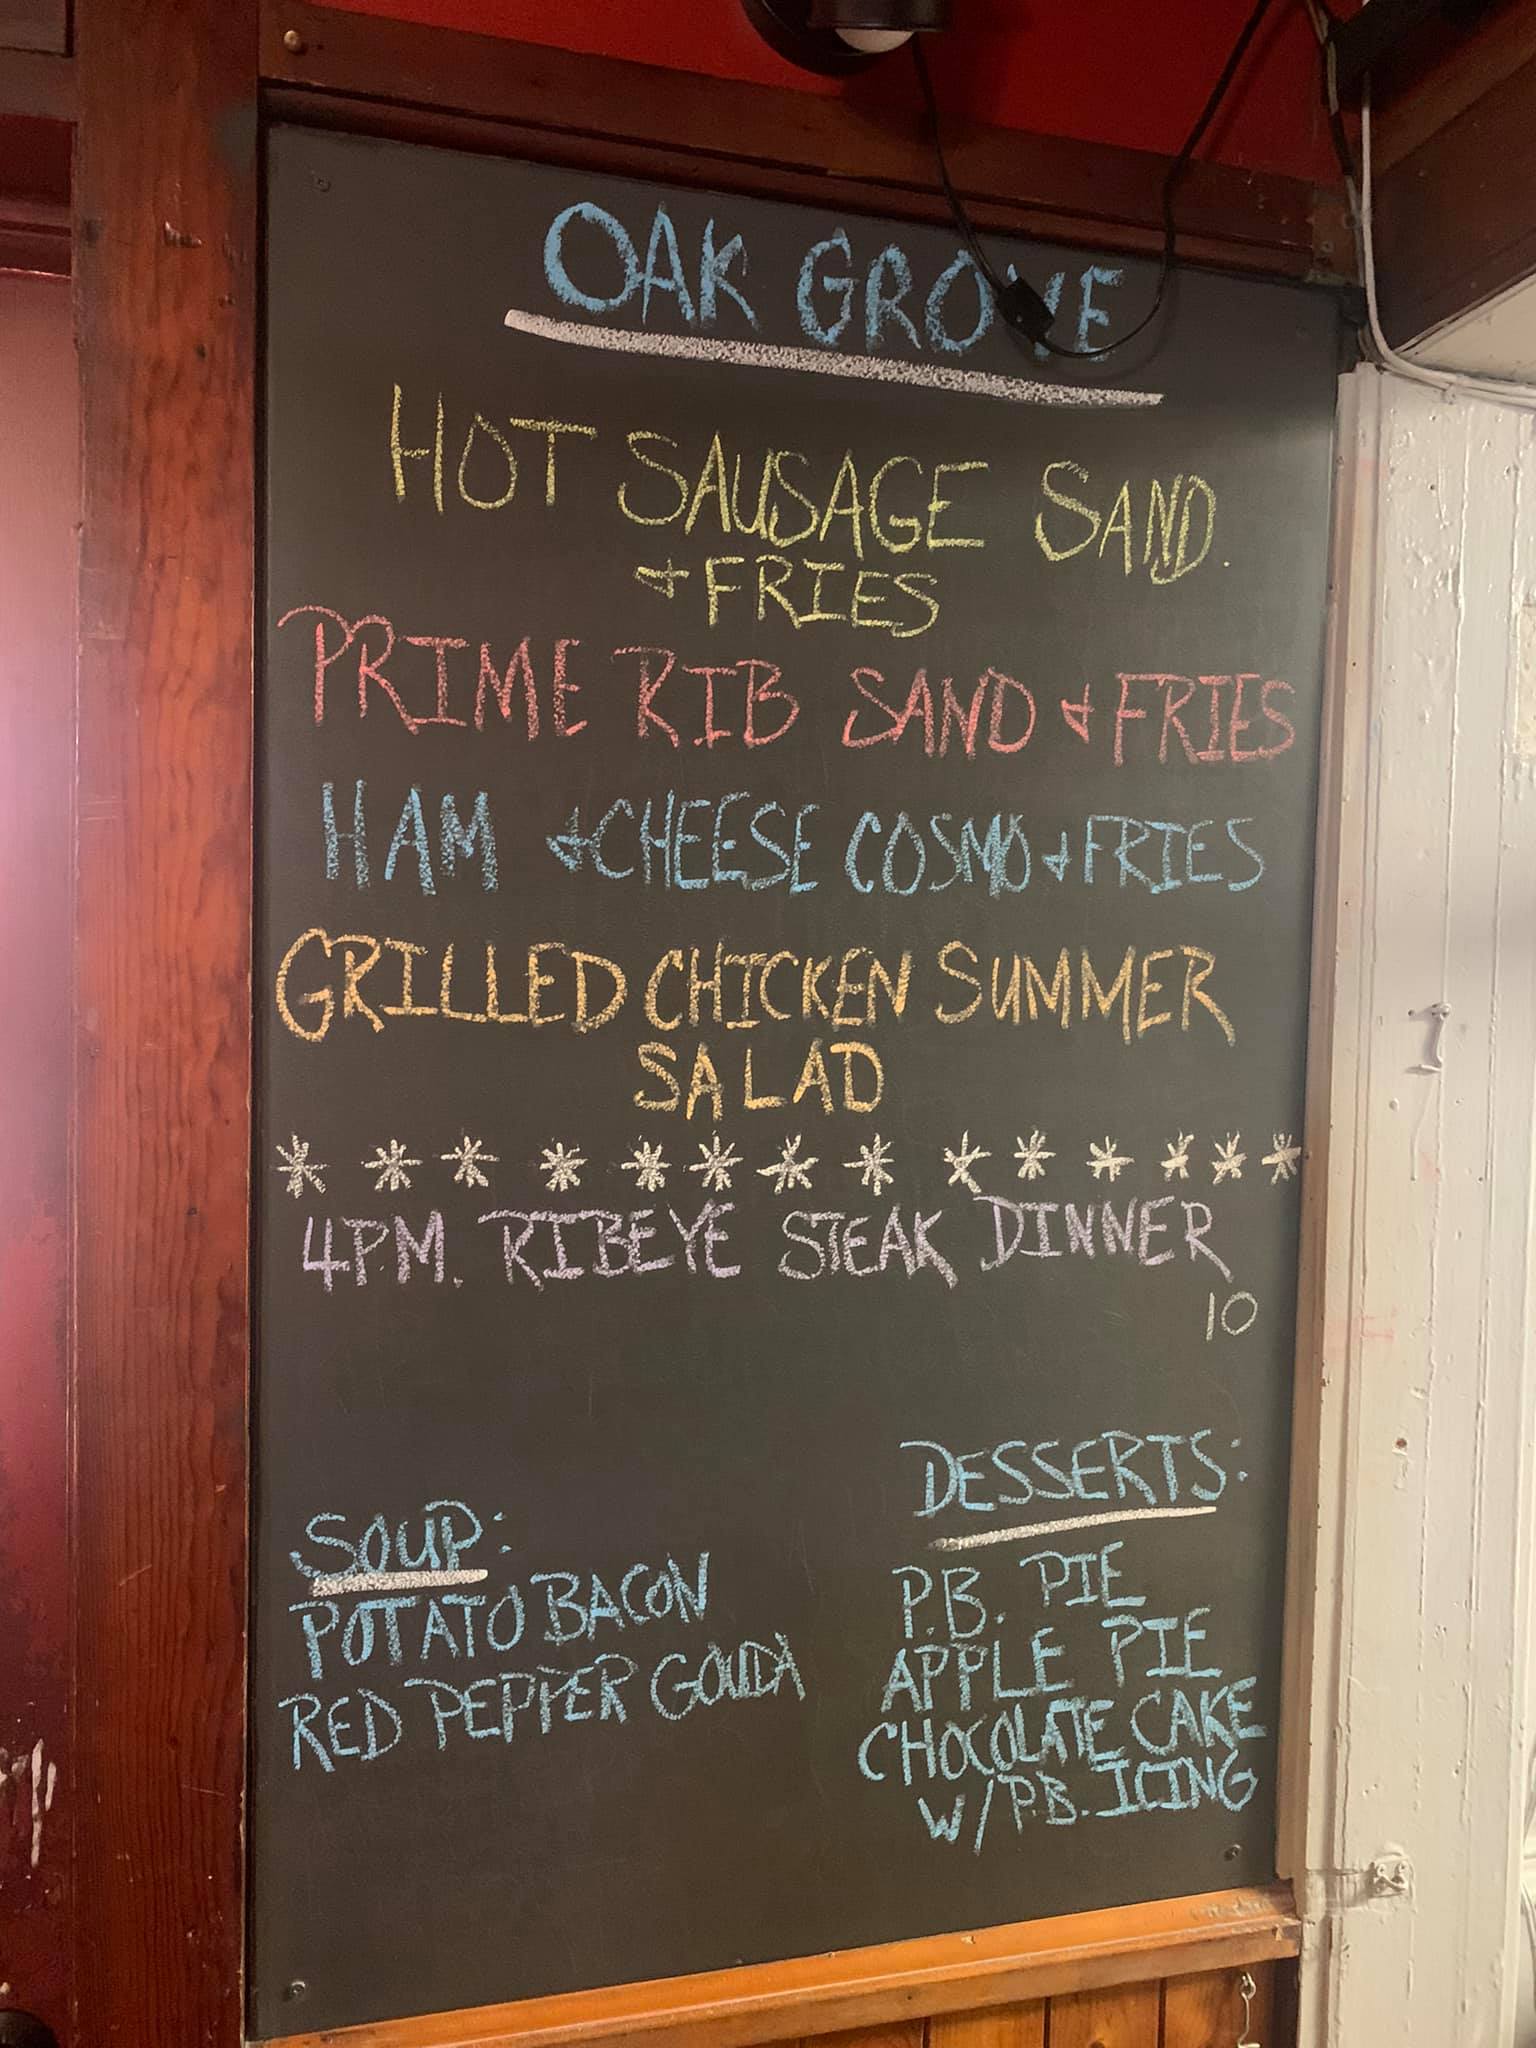 OAK GROVE
HOT SAUSAGE SAND.
& FRIES
PRIME RIB SAND & FRIES
HAM & CHEESE COSMO & FRIES
GRILLED CHICKEN SUMMER
SALAD
* * * * * * * * * * * * * *
4P.M. RIBEYE STEAK DINNER
10
SOUP:
POTATO BACON
RED PEPPER GOUDA
DESSERTS:
P.B. PIE
APPLE PIE
CHOCOLATE CAKE
W/P.B. ICING